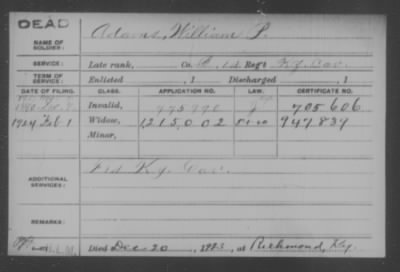 DEAD
NAME OF SOLDIER: Adams, William P.
SERVICE: Late rank, Co. 1st Reg't Ky. Cav.
TERM OF SERVICE: Enlisted , 1 Discharged , 1
DATE OF FILING. CLASS. APPLICATION NO. LAW. CERTIFICATE NO.
Invalid, 705606
1924 Feb 1 Widow, 1215,002 947,839
Minor,
ADDITIONAL SERVICES: Ky. Cav.
REMARKS:
Died Dec-20, 1923, at Richmond, Ky.